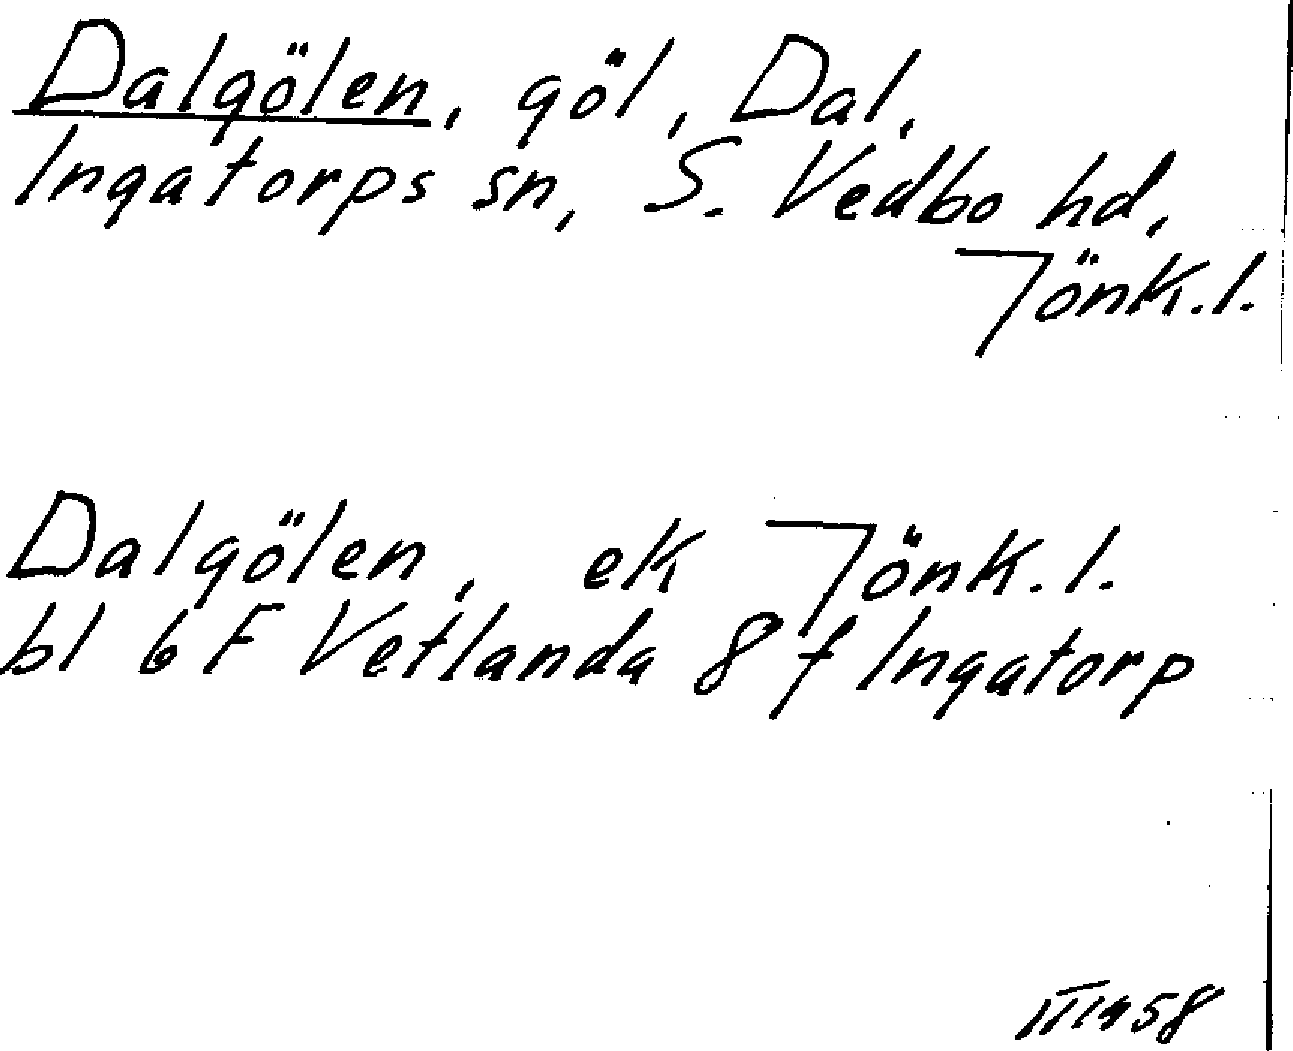 Dalgölen, göl, Dal,
Ingatorps sn, S. Vedbo hd,
Jönk.l.
Dalgölen, ek Jönk.l.
bl 6 F Vetlanda 8 f Ingatorp